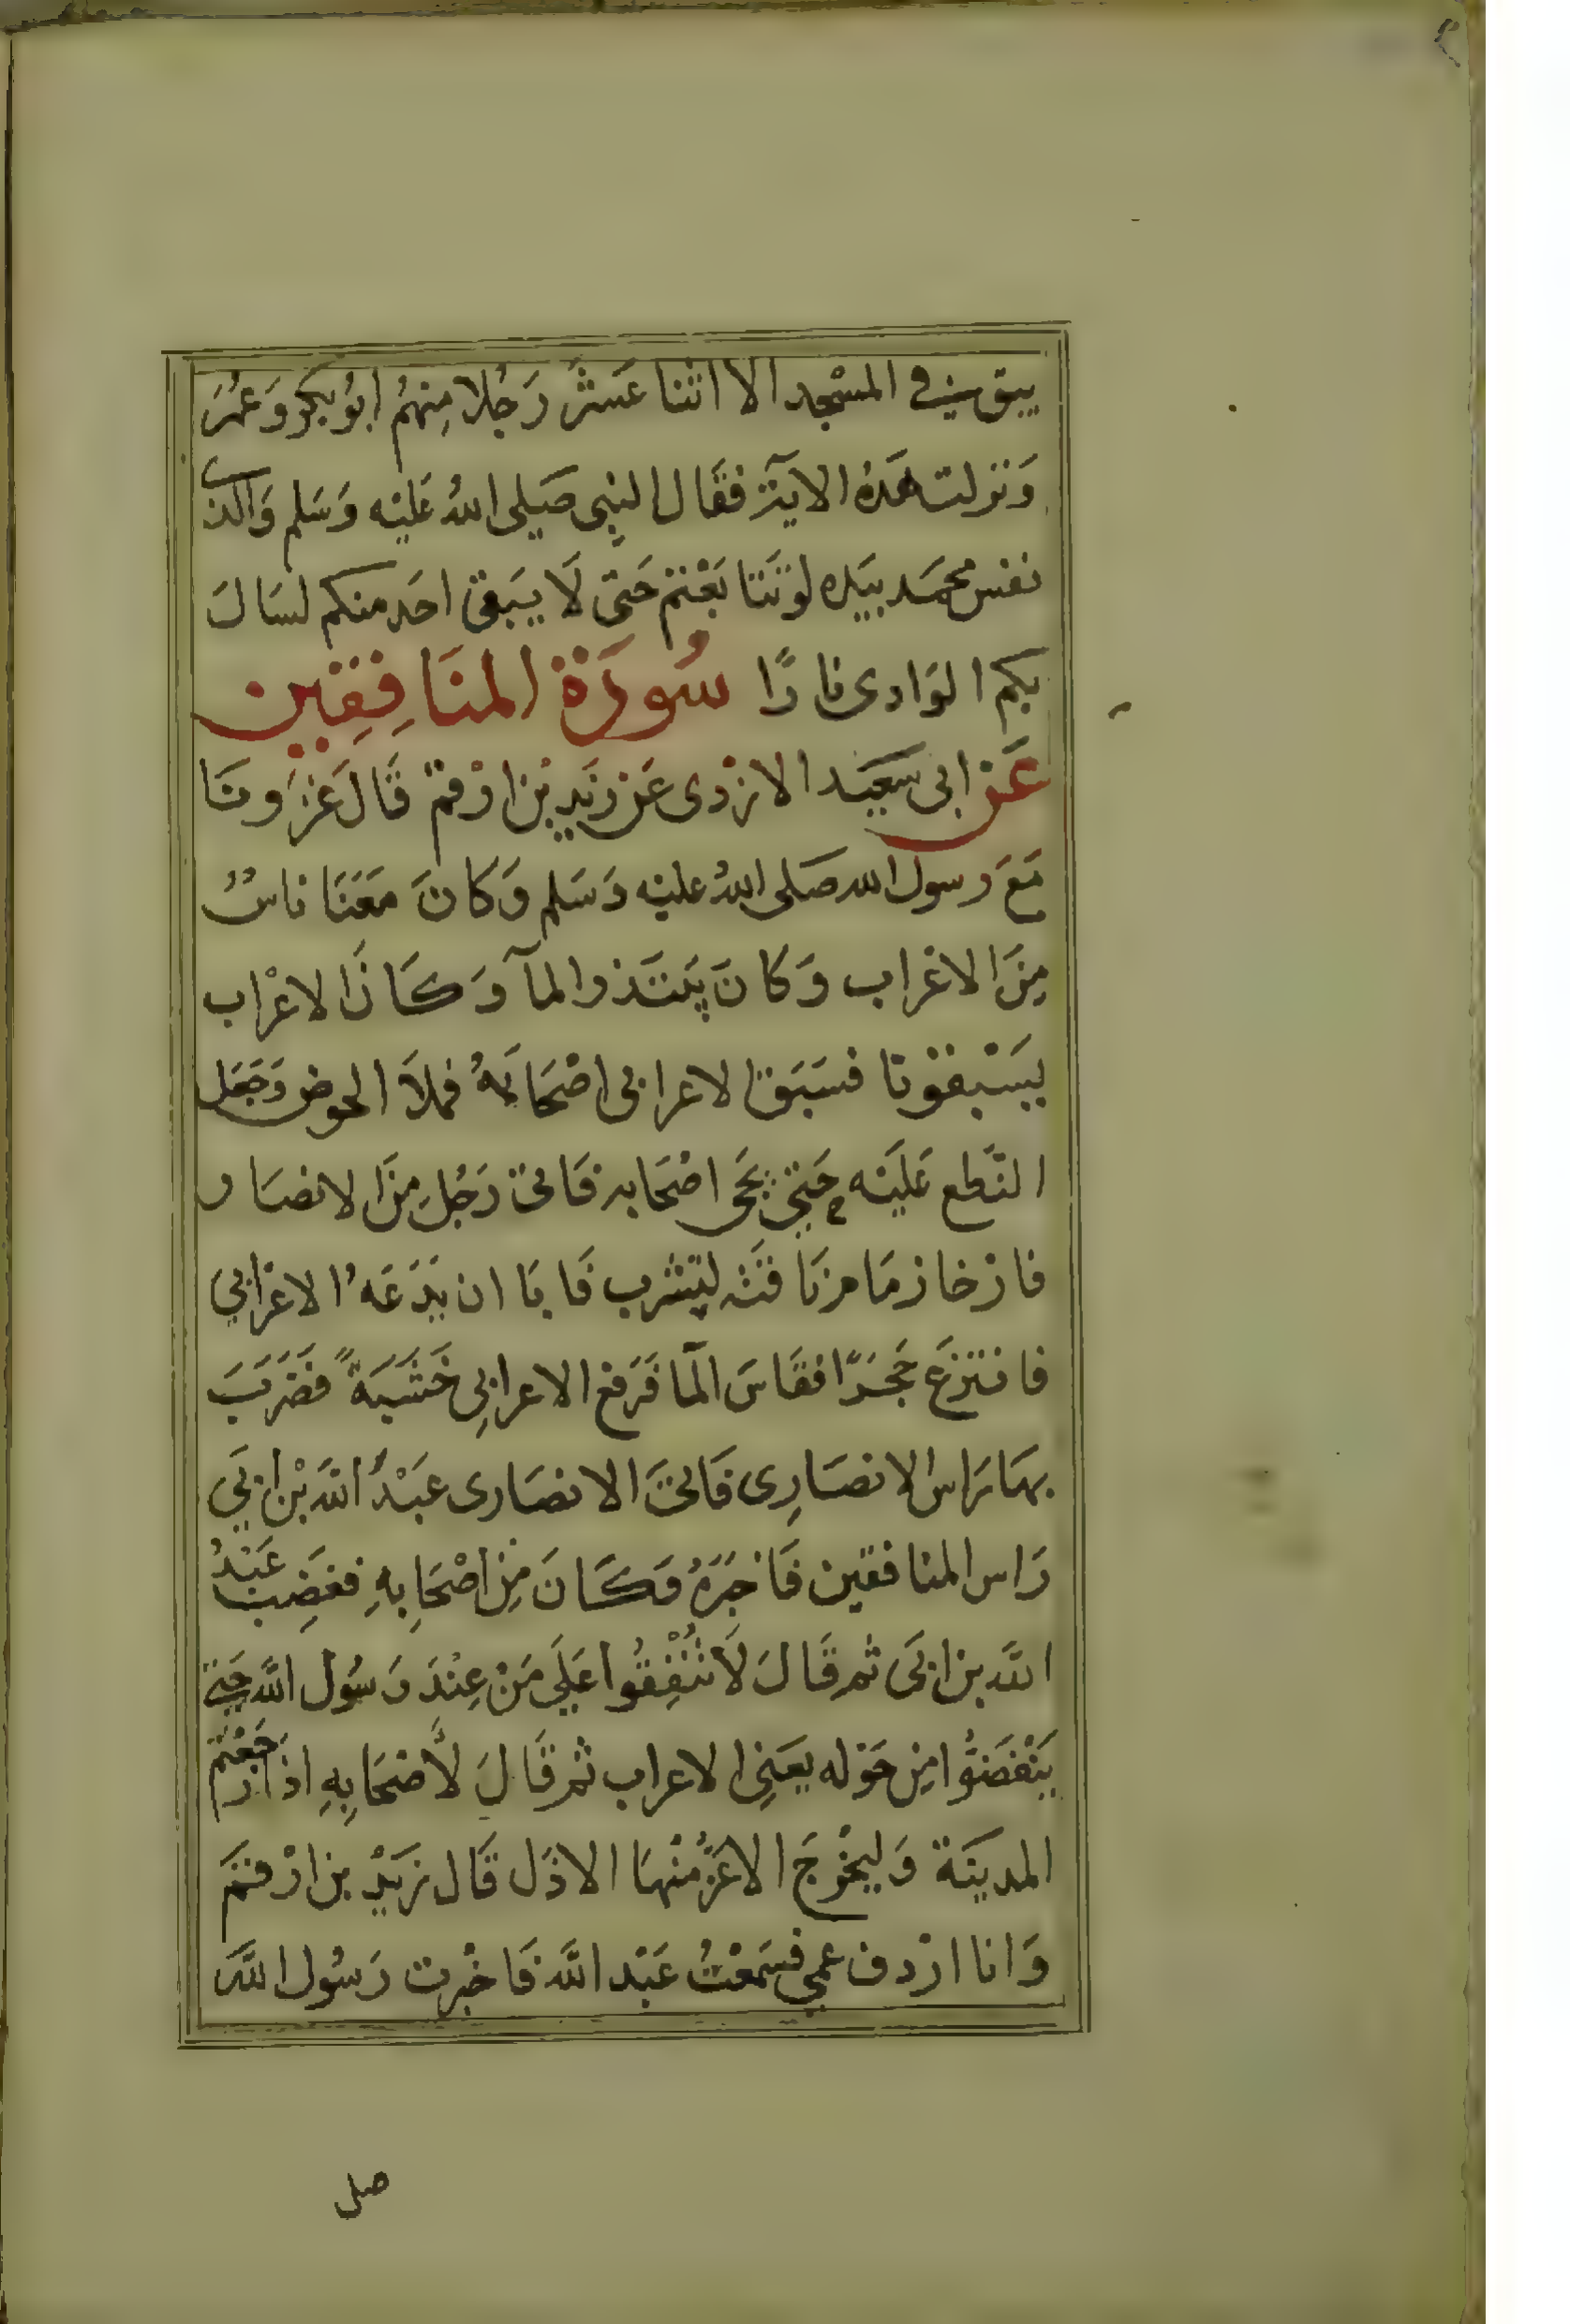 يبق في المسْجد الا اثنا عَشَر رَجُلا مِنهُم ابُو بكر وَعُمَرَ
وَنزلت هَذهُ الايَة فقَال النبِي صَلى اللهُ عَليْه وَسَلم وَالذي
نفس محمَد بيَده لو تتَابَعْتم حَتى لَا يَبقى احَد منكم لسَالَ
بكم الوَادى نارًا سُورَة المنَافِقِين
عَن ابى سَعيَد الازدى عَن زيَدِ بن ارْقم قَال غزَونَا
مَعَ رسول الله صَلى اللهُ عليْه وَسَلم وَكانَ مَعَنَا ناسٌ
مِنَ الاعْراب وَكانَ يَبتَدر المآ وَكَانَ الاعْراب
يسْبقونا فسَبَق الاعرابى اصْحَابَهُ فملأ الحوض وَجَعَل
النّطع عَليْه حَتى يجَى اصْحَابه فَاتى رَجُل مِنَ الانصَار
فارخا زمَام نَاقتَه ليَشرب فَابَا ان يَدَعَهُ الاعْرَابي
فانتزعَ حَجَرًا فقَاسَ المآ فَرَفع الاعرابِى خَشَبَةً فضَرَبَ
بهَا رَاس الانصَارِى فَاتىَ الانصَارى عبَدُ اللهَ بْن ابَي
رَاس المنافقين فَاخبَرَهُ وَكَانَ مِن اصْحَابِهِ فغَضِبَ عَبْدُ
اللَّه بن ابَى ثم قَالَ لَا تُنْفِقُوا عَلَى مَنْ عِنْدَ رَسُول اللَّه حَتى
يَنْفَضّوا مِن حَوْله يعَنِى الاعراب ثم قَالَ لأصْحَابِهِ اذَا رَجَعْتُم
المديَنة وَليخْرجَ الاعَزُّ مُنْهَا الاذَل قَال زيَدْ بن ارْقمَ
وَانا اردف عمى فسَمعْتُ عَبْد اللَّه فَاخْبرت رَسُول اللَّه
صلى